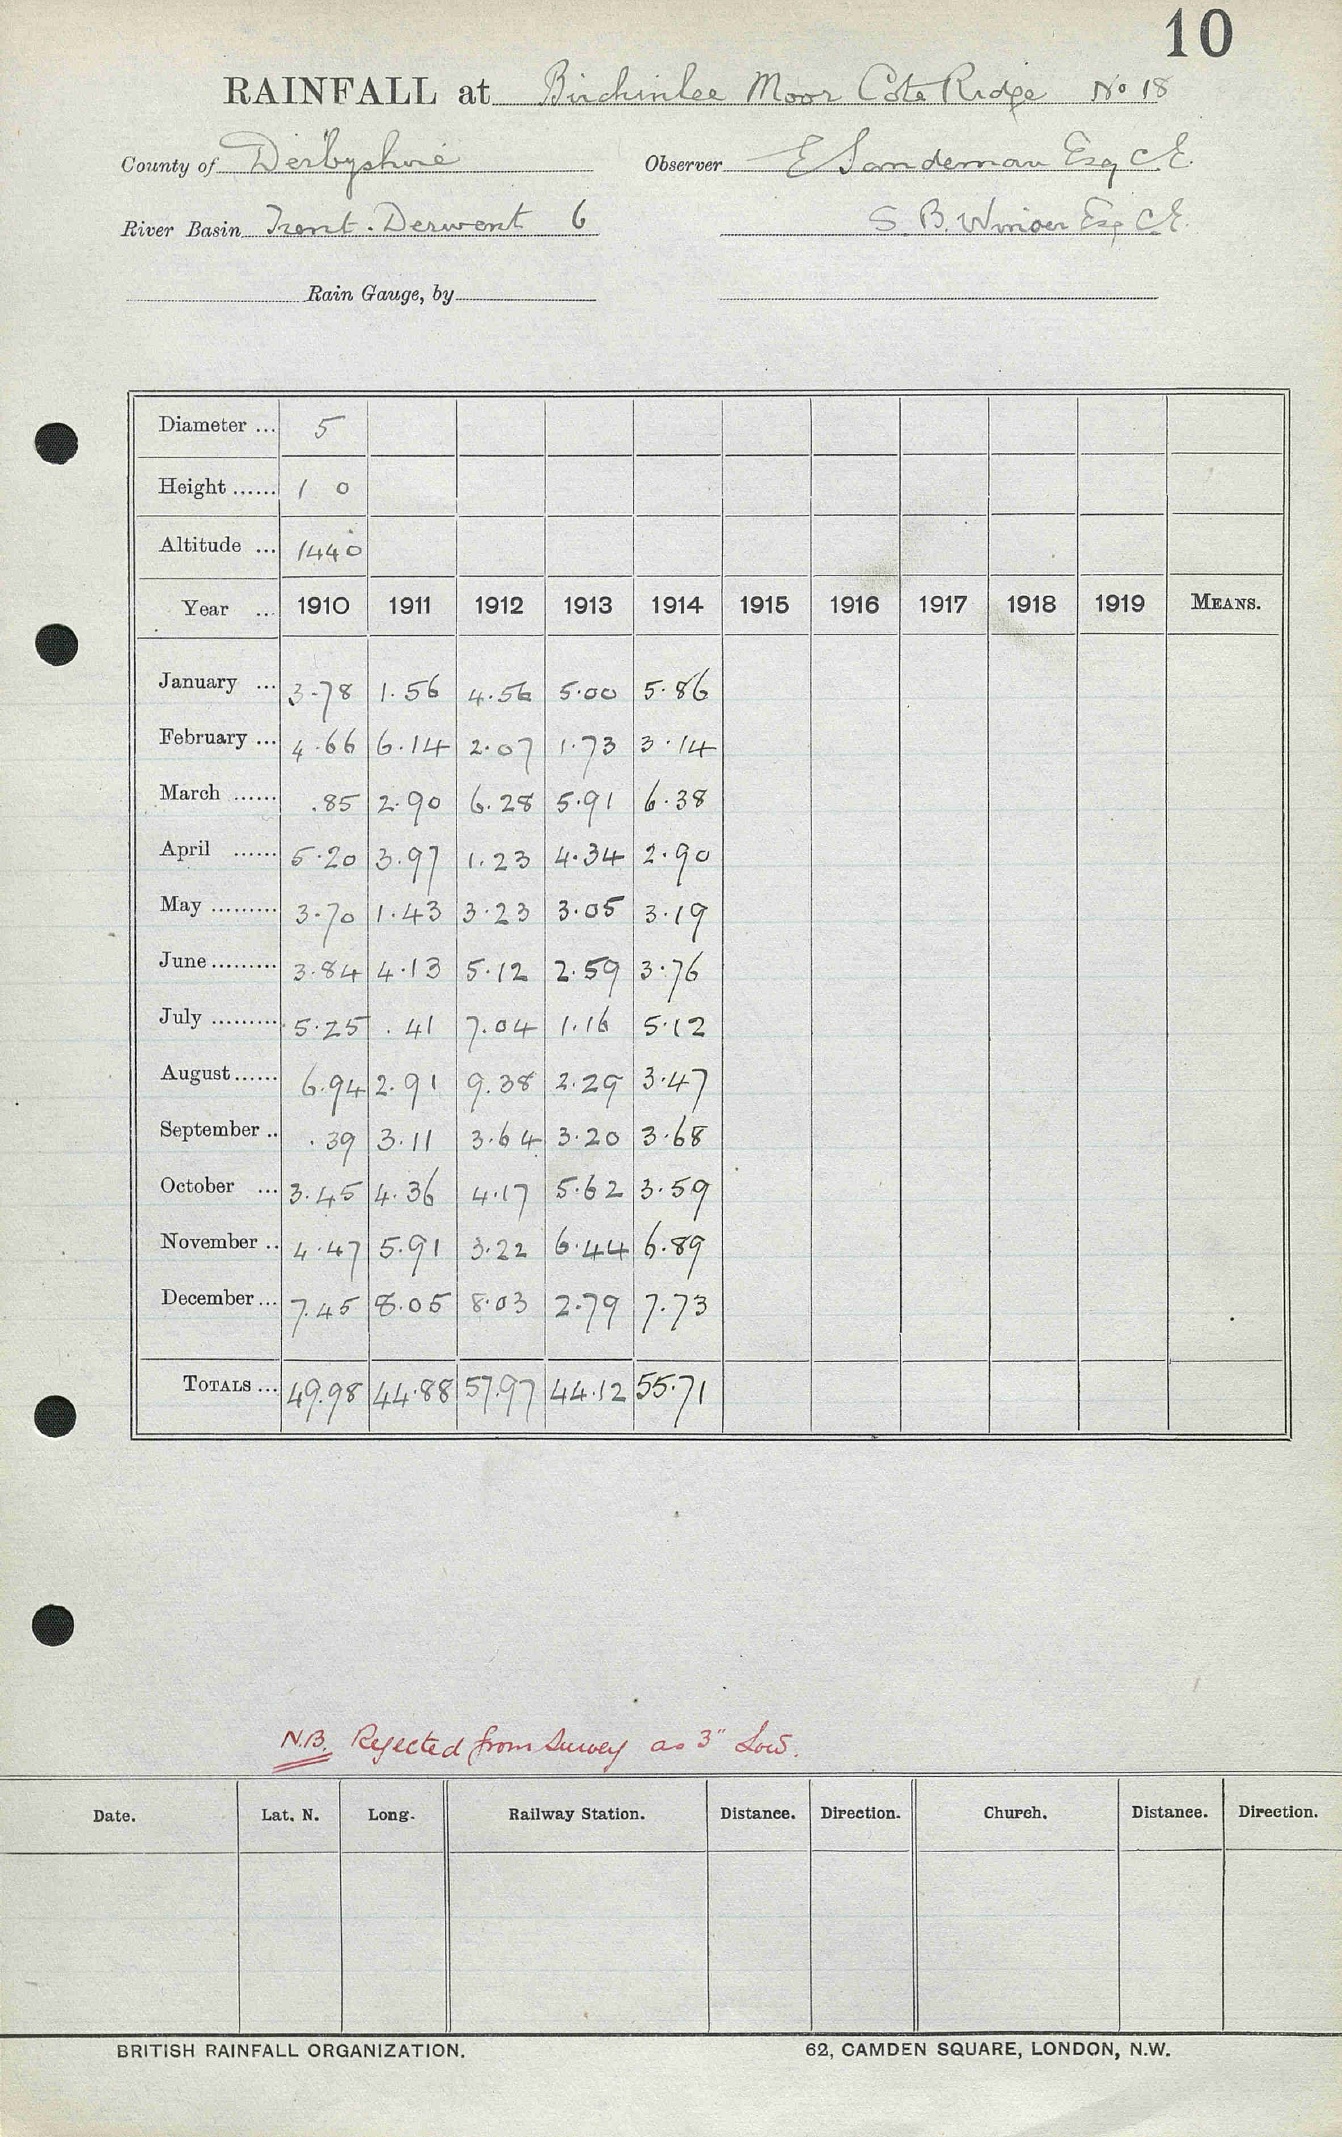 10
RAINFALL at Birchinlee Moor Cote Ridge No 18
County of Derbyshire Observer E Sandeman Esq C.E.
River Basin Trent. Derwent 6 S. B. Winser Esq C.E.
Rain Gauge, by
Diameter ... 5
Height ...... 1 0
Altitude ... 1440
Year ... 1910 1911 1912 1913 1914 1915 1916 1917 1918 1919 MEANS.
January ... 3.78 1.56 4.56 5.00 5.86
February ... 4.66 6.14 2.07 1.73 3.14
March ...... .85 2.90 6.28 5.91 6.38
April ...... 5.20 3.97 1.23 4.34 2.90
May ......... 3.70 1.43 3.23 3.05 3.19
June ......... 3.84 4.13 5.12 2.59 3.76
July ......... 5.25 .41 7.04 1.16 5.12
August ...... 6.94 2.91 9.38 2.29 3.47
September .. .39 3.11 3.64 3.20 3.68
October ... 3.45 4.36 4.17 5.62 3.59
November .. 4.47 5.91 3.22 6.44 6.89
December ... 7.45 8.05 8.03 2.79 7.73
TOTALS ... 49.98 44.88 57.97 44.12 55.71
N.B. Rejected from Survey as 3" Low.
Date. Lat. N. Long. Railway Station. Distance. Direction. Church. Distance. Direction.
BRITISH RAINFALL ORGANIZATION. 62, CAMDEN SQUARE, LONDON, N.W.